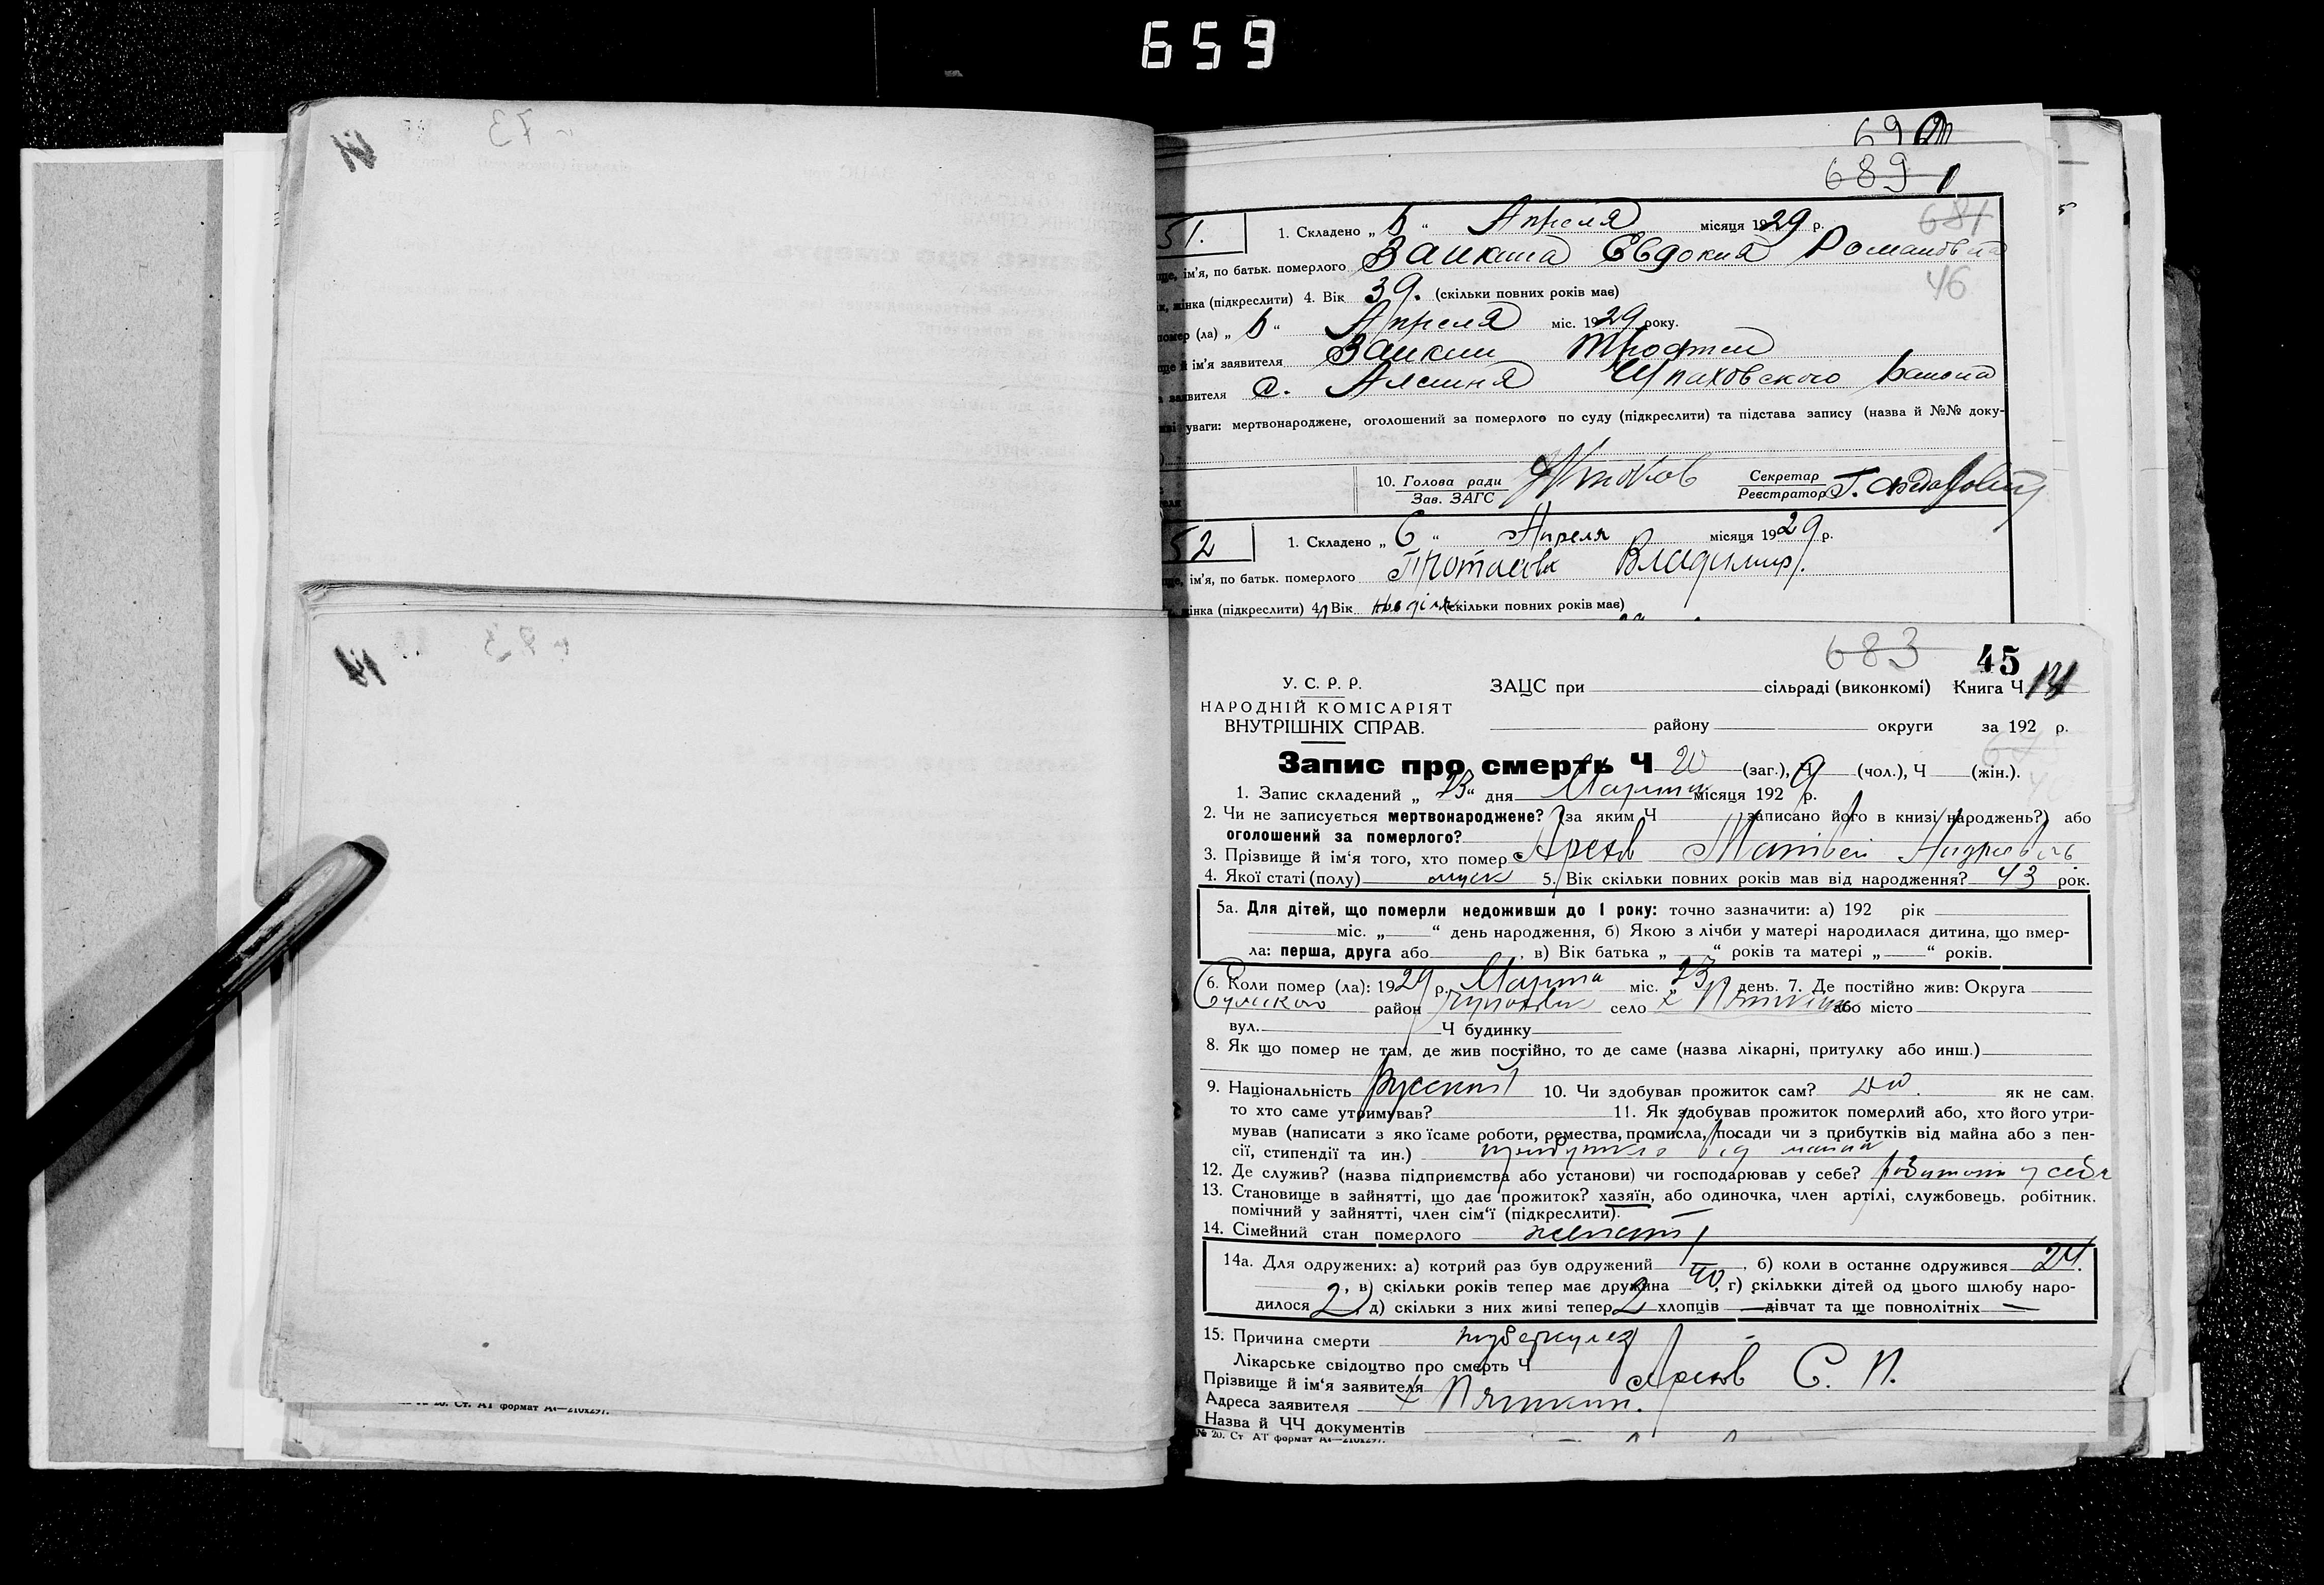 659
73
690
689
681
51.
1. Складено „ 6 “ Апреля місяця 1929 р.
ще, ім'я, по батьк. померлого Заикина Евдокия Романовна
46
жінка (підкреслити) 4. Вік 39. (скільки повних років має)
помер (ла) „ 6 “ Апреля міс. 1929 року.
ще й ім'я заявителя Заикин Трофим
заявителя с. Алешня Чупаховского района
уваги: мертвонароджене, оголошений за померлого по суду (підкреслити) та підстава запису (назва й №№ доку-
10. Голова ради
Зав. ЗАГС
Секретар
Реєстратор
52
1. Складено „ 6 “ Апреля місяця 1929 р.
ще, ім'я, по батьк. померлого Владимир.
жінка (підкреслити) 4. Вік (скільки повних років має)
683 45
У. С. Р. Р.
НАРОДНІЙ КОМІСАРІЯТ
ВНУТРІШНІХ СПРАВ.
ЗАЦС при сільраді (виконкомі) Книга Ч 14
району округи за 192 р.
Запис про смерть Ч 20 (заг.), Ч (чол.), Ч (жін.).
1. Запис складений „ 23 “ дня Марта місяця 1929 р.
2. Чи не записується мертвонароджене? (за яким Ч записано його в книзі народжень?) або
оголошений за померлого?
3. Прізвище й ім'я того, хто помер Арехов Матвей Андреевичь
4. Якої статі (полу) муж 5. Вік скільки повних років мав від народження? 43 рок.
5а. Для дітей, що померли недоживши до 1 року: точно зазначити: а) 192 рік
міс. „ “ день народження, б) Якою з лічби у матері народилася дитина, що вмер-
ла: перша, друга або , в) Вік батька „ “ років та матері „ “ років.
6. Коли помер (ла): 1929 р. Марта міс. „ 23 день. 7. Де постійно жив: Округа
Сумского район село х або місто
вул. Ч будинку
8. Як що помер не там, де жив постійно, то де саме (назва лікарні, притулку або инш.)
9. Національність русский 10. Чи здобував прожиток сам? да. як не сам.
то хто саме утримував? 11. Як здобував прожиток померлий або, хто його утри-
мував (написати з яко їсаме роботи, ремества, промисла, посади чи з прибутків від майна або з пен-
сії, стипендії та ин.)
12. Де служив? (назва підприємства або установи) чи господарював у себе? у себя
13. Становище в зайнятті, що дає прожиток? хазяїн, або одиночка, член артілі, службовець. робітник.
помічний у зайнятті, член сім'ї (підкреслити).
14. Сімейний стан померлого женатый
14а. Для одружених: а) котрий раз був одружений , б) коли в останнє одружився 24.
2, в) скільки років тепер має дружина 40, г) скількки дітей од цього шлюбу наро-
дилося 2, д) скільки з них живі тепер 2 хлопців — дівчат та ще повнолітніх —
15. Причина смерти туберкулез
Лікарське свідоцтво про смерть Ч
Прізвище й ім'я заявителя Арехов С. П.
Адреса заявителя х
Назва й ЧЧ документів
№ 20. Ст АТ формат А4—210х297.